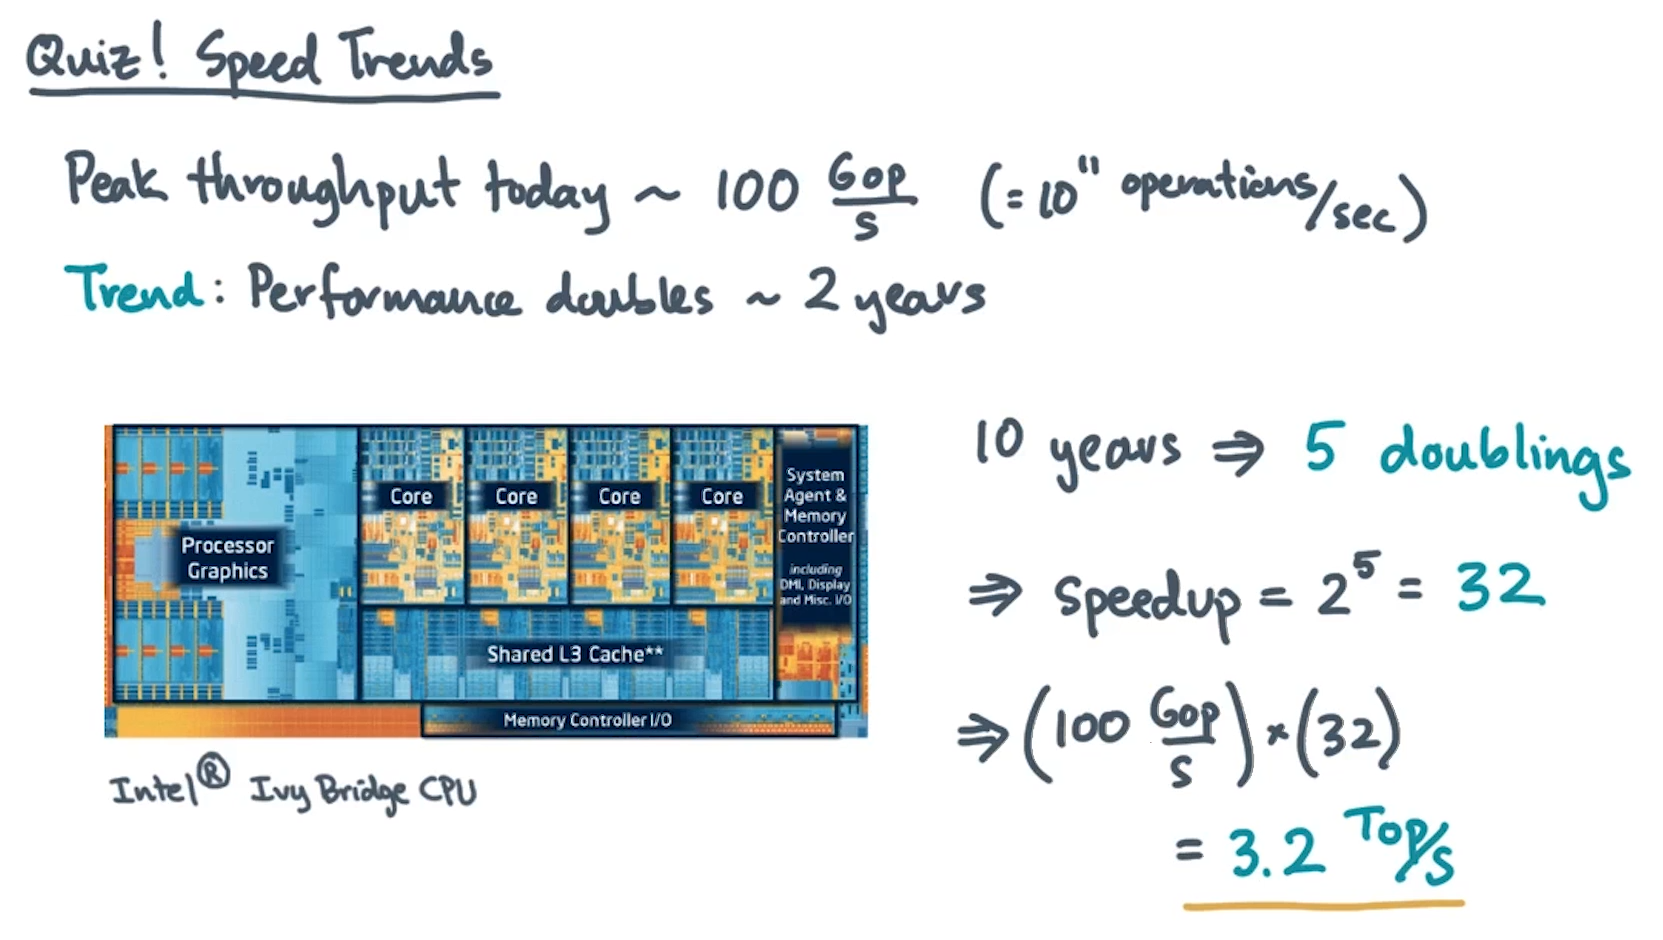 Quiz! Speed Trends
Peak throughput today ~ 100 Gop/s (= 10¹¹ operations/sec)
Trend: Performance doubles ~ 2 years
Processor
Graphics
Core
Core
Core
Core
System
Agent &
Memory
Controller
including
DMI, Display
and Misc. I/O
Shared L3 Cache**
Memory Controller I/O
Intel® Ivy Bridge CPU
10 years ⇒ 5 doublings
⇒ speedup = 2⁵ = 32
⇒ (100 Gop/s) × (32)
= 3.2 Top/s